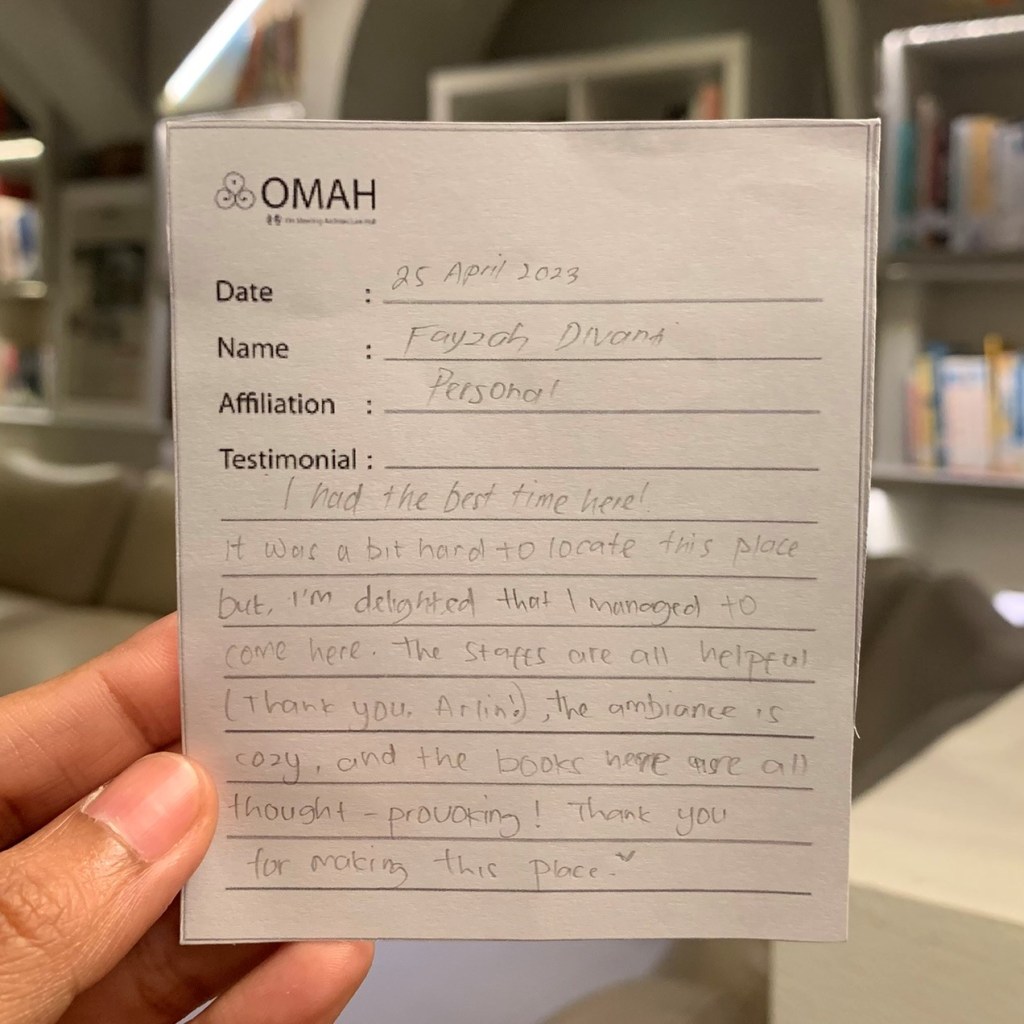 OMAH
Date : 25 April 2023
Name : Fayzah Divanti
Affiliation : Personal
Testimonial :
I had the best time here!
It was a bit hard to locate this place
but, I'm delighted that I managed to
come here. The staffs are all helpful
(Thank you, Arlin!), the ambiance is
cozy, and the books here are all
thought-provoking! Thank you
for making this place.